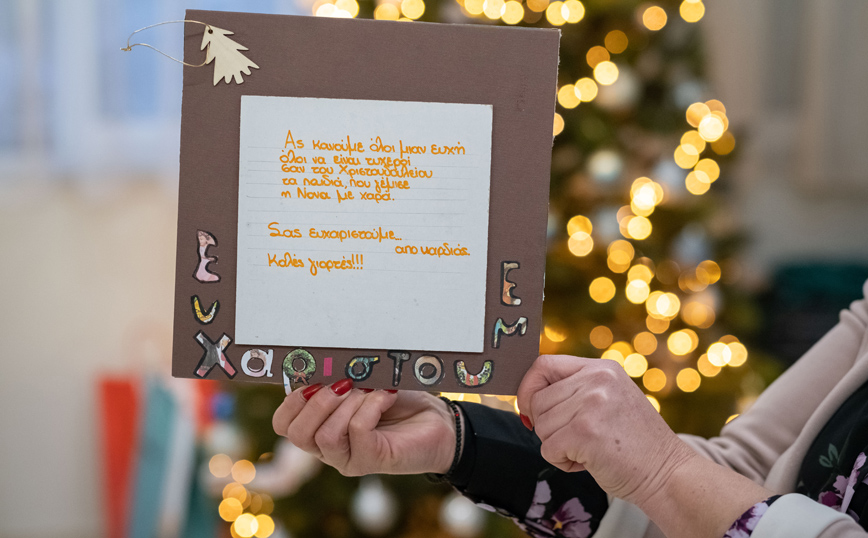 Ας κανούμε όλοι μιαν ευχή
όλοι να είναι τυχεροί
σαν του Χριστουθαλείου
τα παιδιά, που γέμισε
η Νονα με χαρά.
Σας ευχαριστούμε...
απο καρδιάς.
Καλές γιορτές!!!
Ευχαριστουμε